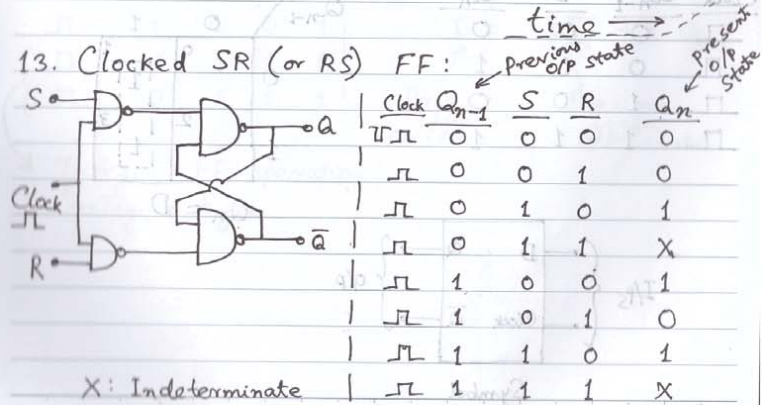 time →
13. Clocked SR (or RS) FF :
Previous O/P state
Present O/P state
S
R
Clock
Q
Q̅
Clock Qn-1 S R Qn
0 0 0 0
0 0 1 0
0 1 0 1
0 1 1 X
1 0 0 1
1 0 1 0
1 1 0 1
1 1 1 X
X: Indeterminate